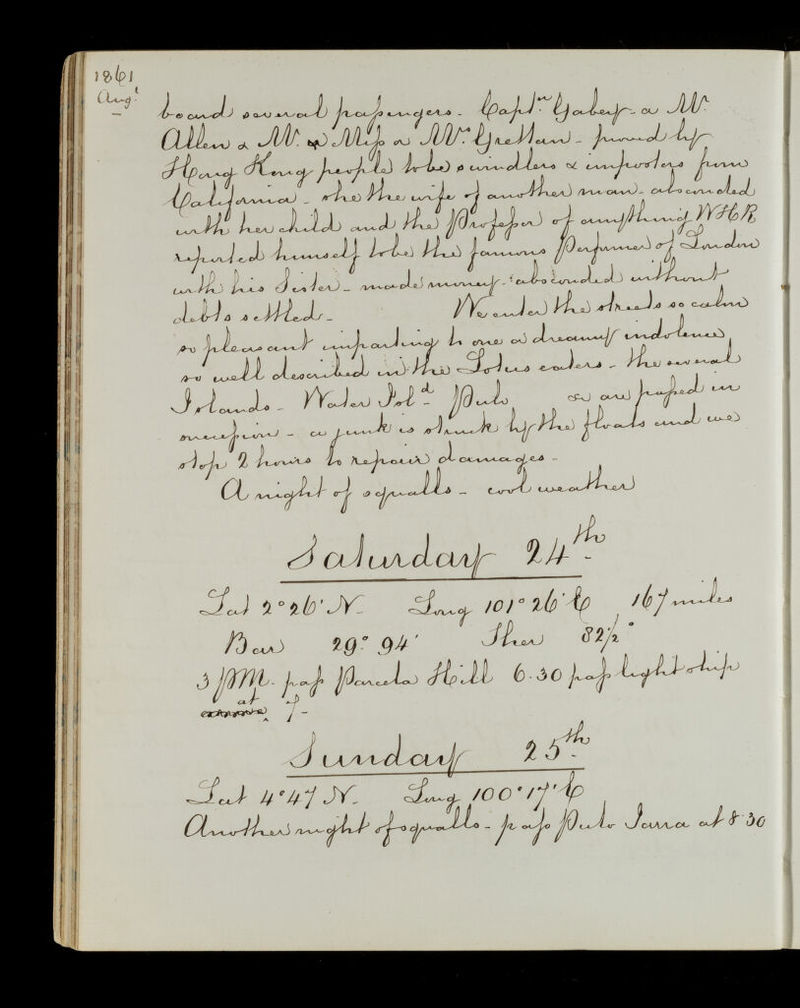 1861
Augt
board several passengers - Captn Gabey - a Mr
Allen & Mr & Miss a Mrs Grettan - proved by
Hong Kong people to be swindlers & imposters from
California - she the wife of another man - absconded
with her child and the Professor of anything WHR
reported himself to be the famous Perfumer of London
with his Sister - made money - absconded without
debts settled - We enter the streets so calm
so pleasant imparting to one a dreamy indolence
so well described in the Lotus eaters - the several
Islands - Water Isld - Pulo & are passed in
succession - a junk is struck by the floats and we
stop 2 hours to repair damages -
A night of squalls - cool weather
Saturday 24th
Lat 2°26' N - Long 101°26' E 167 miles
Bar 29° 94' Ther 82½°
3 PM - pass Parcela Hill 6.30 pass light ship
at 7 -
Sunday 25th
Lat 4°47 N - Long 100°17' E
Another night of squalls - pass Pulo Jarra at 8.30